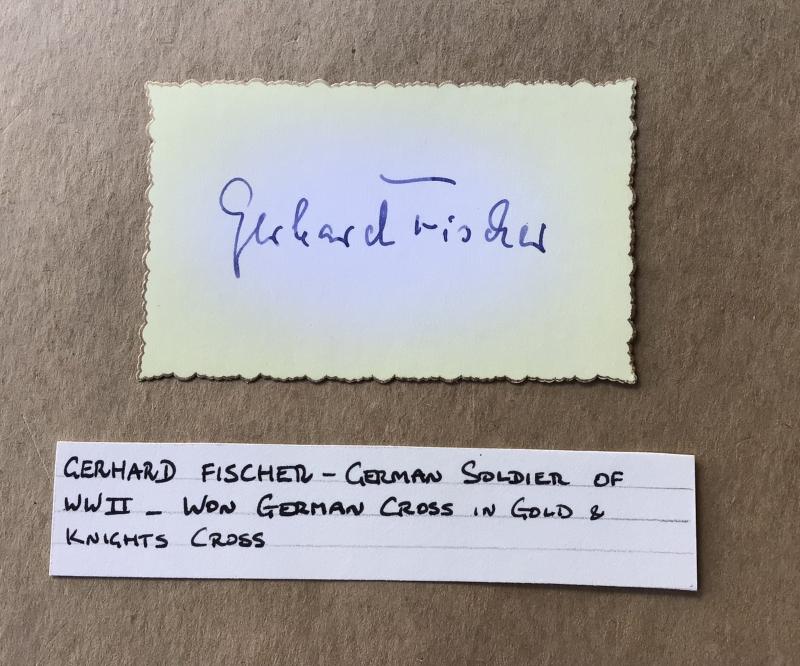 Gerhard Fischer
GERHARD FISCHER – GERMAN SOLDIER OF
WWII – WON GERMAN CROSS IN GOLD &
KNIGHTS CROSS